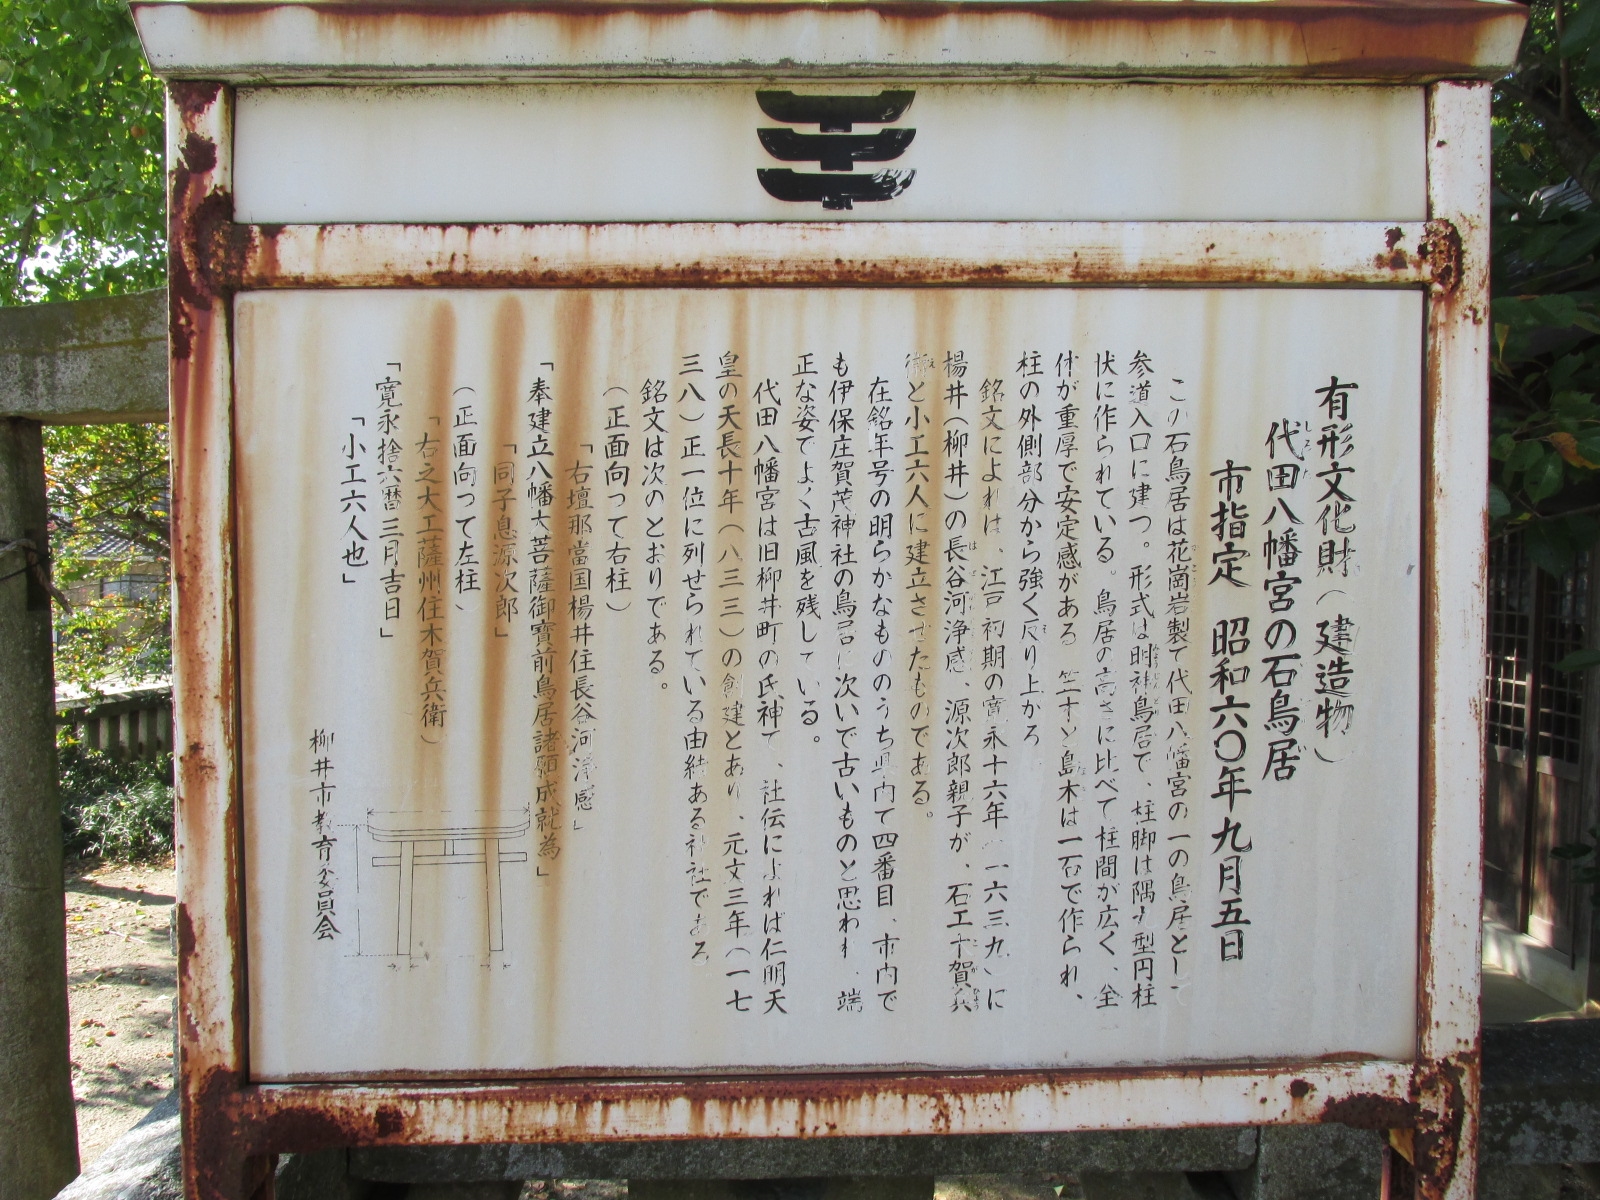 有形文化財（建造物）
代田八幡宮の石鳥居
市指定 昭和六〇年九月五日
この石鳥居は花崗岩製で代田八幡宮の一の鳥居として
参道入口に建つ。形式は明神鳥居で、柱脚は隅丸型円柱
状に作られている。鳥居の高さに比べて柱間が広く、全
体が重厚で安定感がある 笠木と島木は一石で作られ、
柱の外側部分から強く反り上がる
銘文によれば、江戸初期の寛永十六年（一六三九）に
楊井（柳井）の長谷河浄感、源次郎親子が、石工木賀兵
衛と小工六人に建立させたものである。
在銘年号の明らかなもののうち県内で四番目、市内で
も伊保庄賀茂神社の鳥居に次いで古いものと思われ、端
正な姿でよく古風を残している。
代田八幡宮は旧柳井町の氏神で、社伝によれば仁明天
皇の天長十年（八三三）の創建とあり、元文三年（一七
三八）正一位に列せられている由緒ある神社である
銘文は次のとおりである。
（正面向って右柱）
「右壇那當国楊井住長谷河浄感」
「奉建立八幡大菩薩御寶前鳥居諸願成就為」
「同子息源次郎」
（正面向って左柱）
「右之大工薩州住木賀兵衛）
「寛永拾六暦三月吉日」
「小工六人也」
柳井市教育委員会